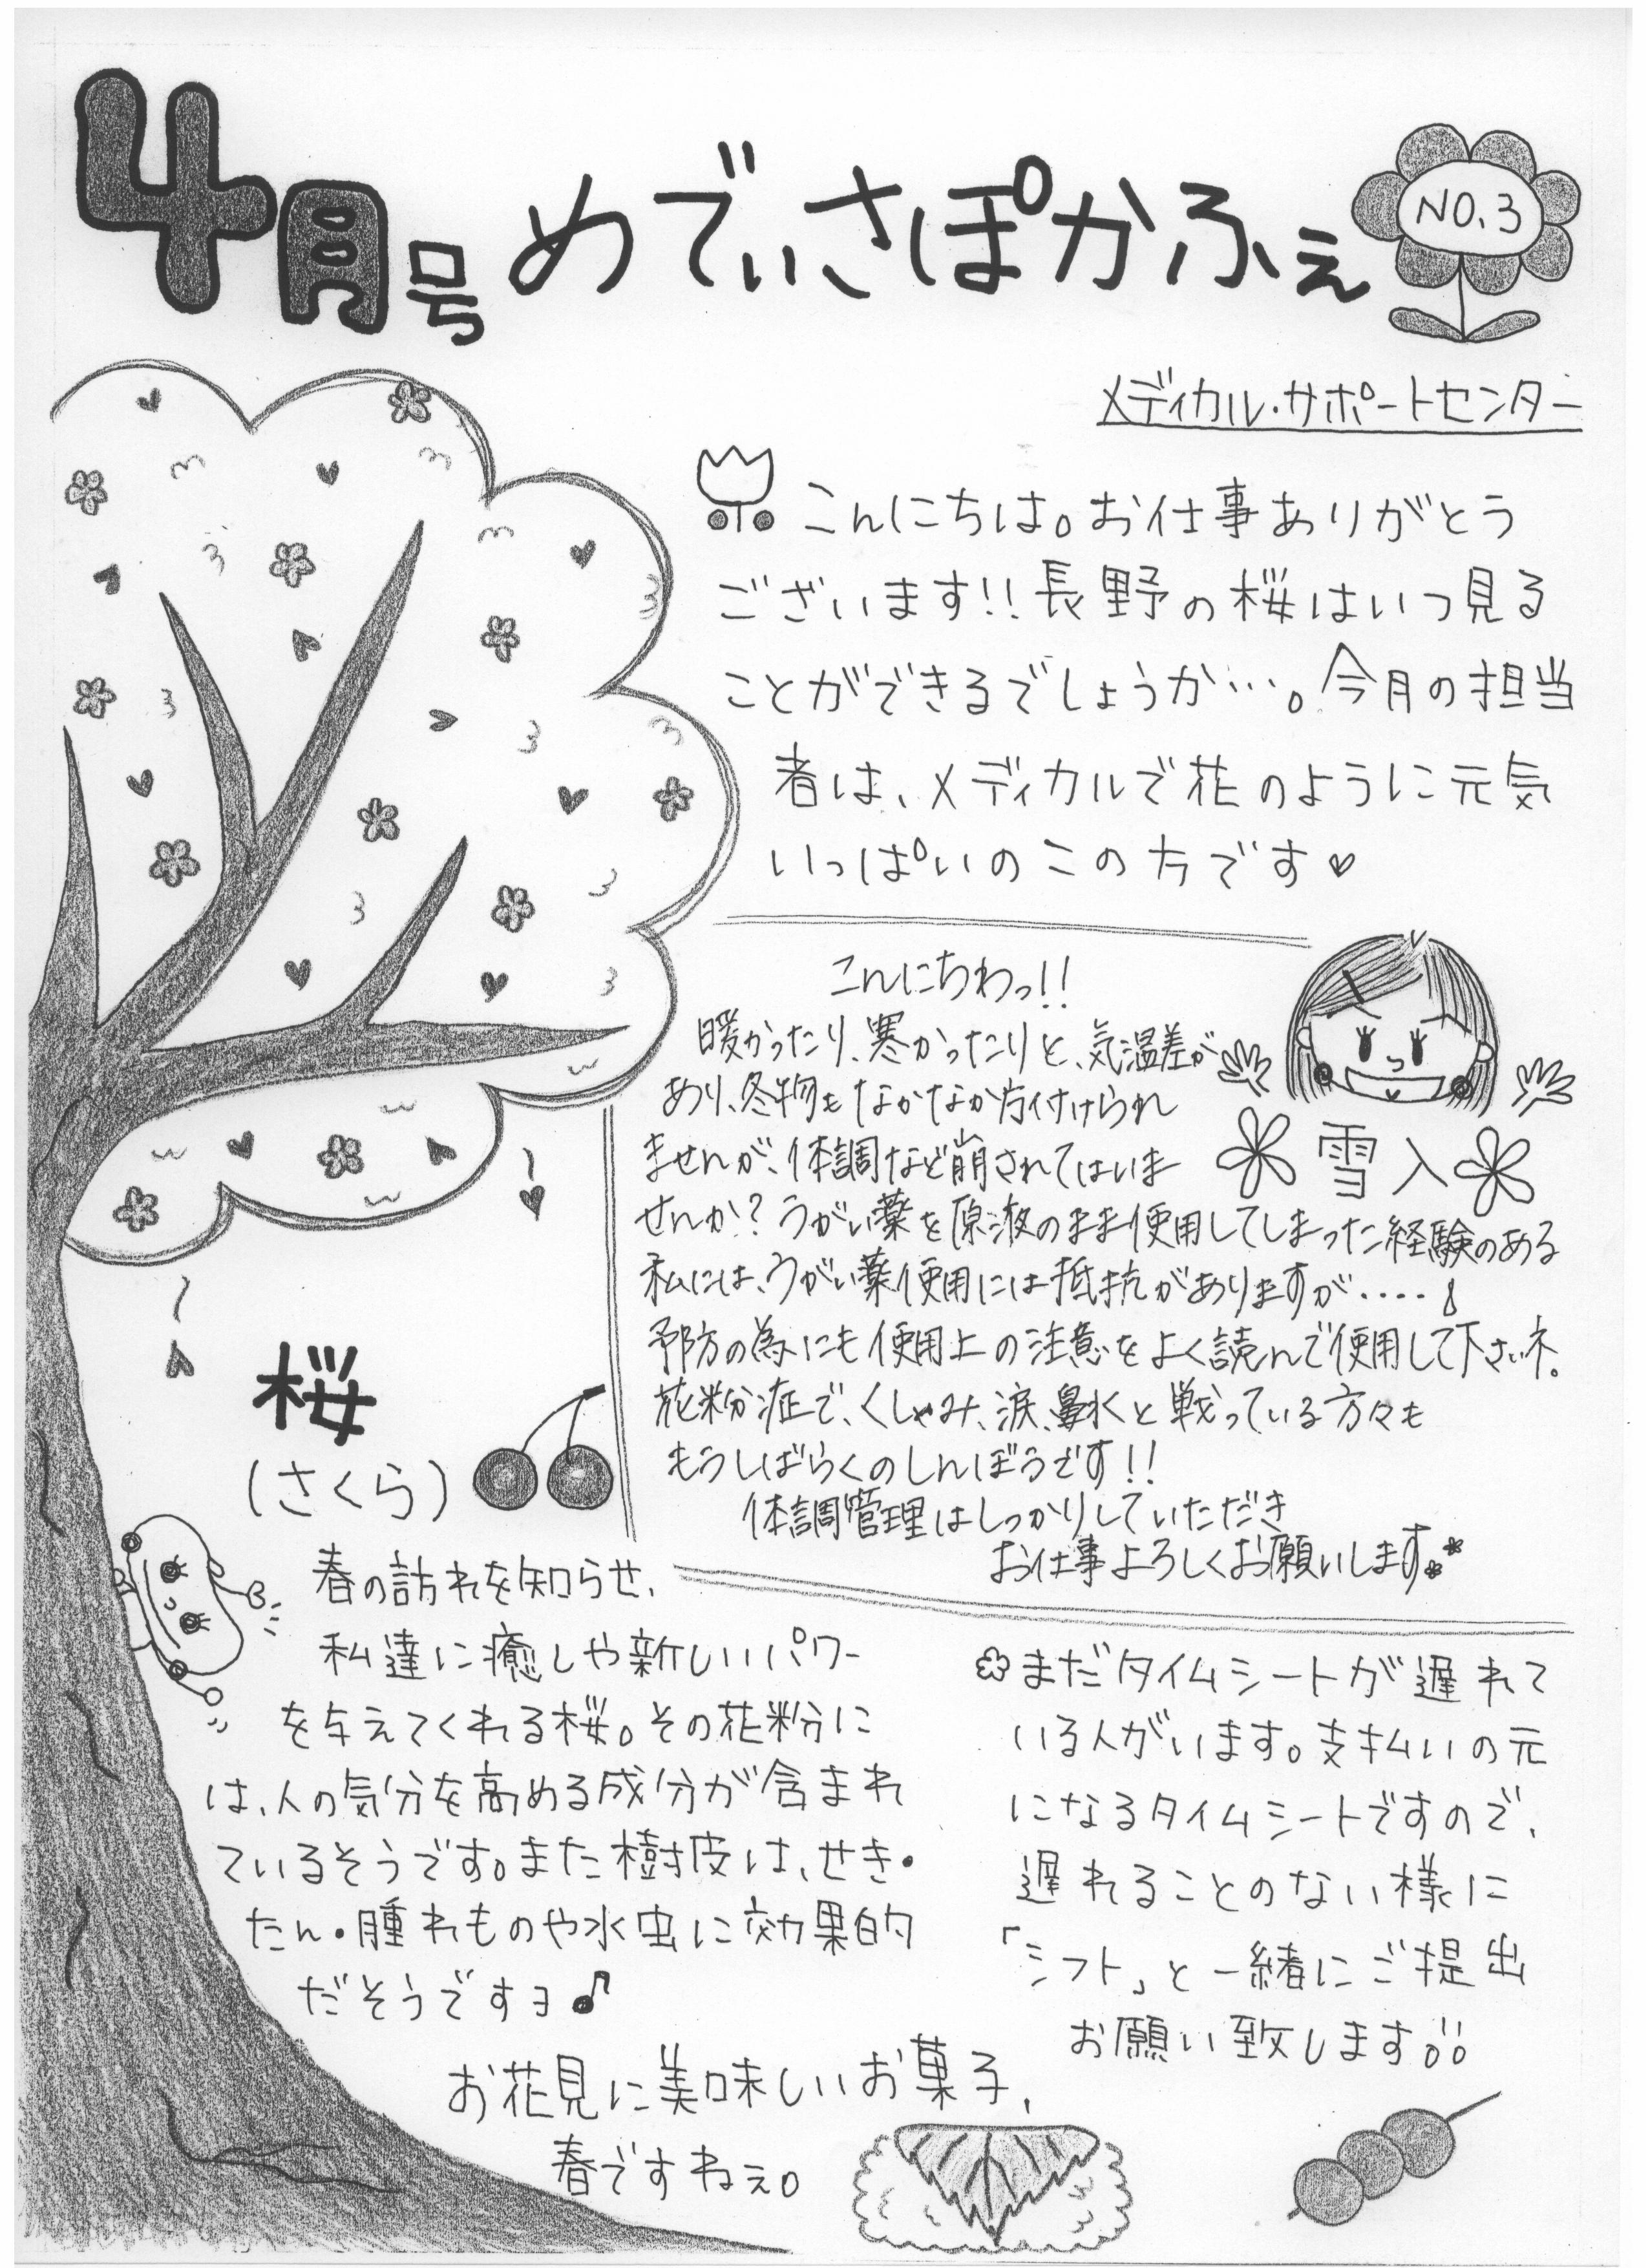 4月号 めでぃさぽかふぇ
NO.3
メディカル・サポートセンター
こんにちは。お仕事ありがとう
ございます!!長野の桜はいつ見る
ことができるでしょうか…。今月の担当
者は、メディカルで花のように元気
いっぱいのこの方です♥
こんにちわっ!!
暖かったり、寒かったりと、気温差が
あり、冬物もなかなか片付けられ
ませんが、体調など崩されてはいま
せんか?うがい薬を原液のまま使用してしまった経験のある
私には、うがい薬使用には抵抗がありますが‥‥
予防の為にも使用上の注意をよく読んで使用して下さいネ。
花粉症で、くしゃみ、涙、鼻水と戦っている方々も
もうしばらくのしんぼうです!!
体調管理はしっかりしていただき
お仕事よろしくお願いします。
雪入
桜
(さくら)
春の訪れを知らせ、
私達に癒しや新しいパワー
を与えてくれる桜。その花粉に
は、人の気分を高める成分が含まれ
ているそうです。また樹皮は、せき・
たん・腫れものや水虫に効果的
だそうですヨ♪
お花見に美味しいお菓子、
春ですねぇ。
まだタイムシートが遅れて
いる人がいます。支払いの元
になるタイムシートですので、
遅れることのない様に
「シフト」と一緒にご提出
お願い致します。